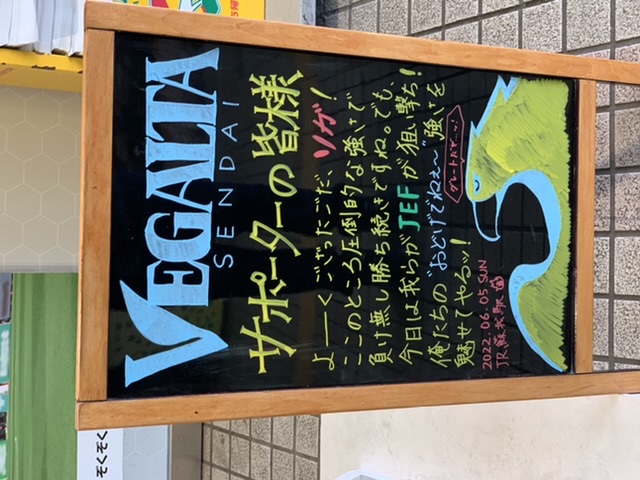 VEGALTA
SENDAI
サポーターの皆様
よーくござったごだ、ソガ!
ここのところ圧倒的な強さで
負け無し勝ち続きですね。でも、
今日は我らがJEFが狙い撃ち!
俺たちの"おどげでねぇ〜"強さを
魅せてやるッ!
2022.06.05 SUN
JR蘇我駅
ぞくぞく